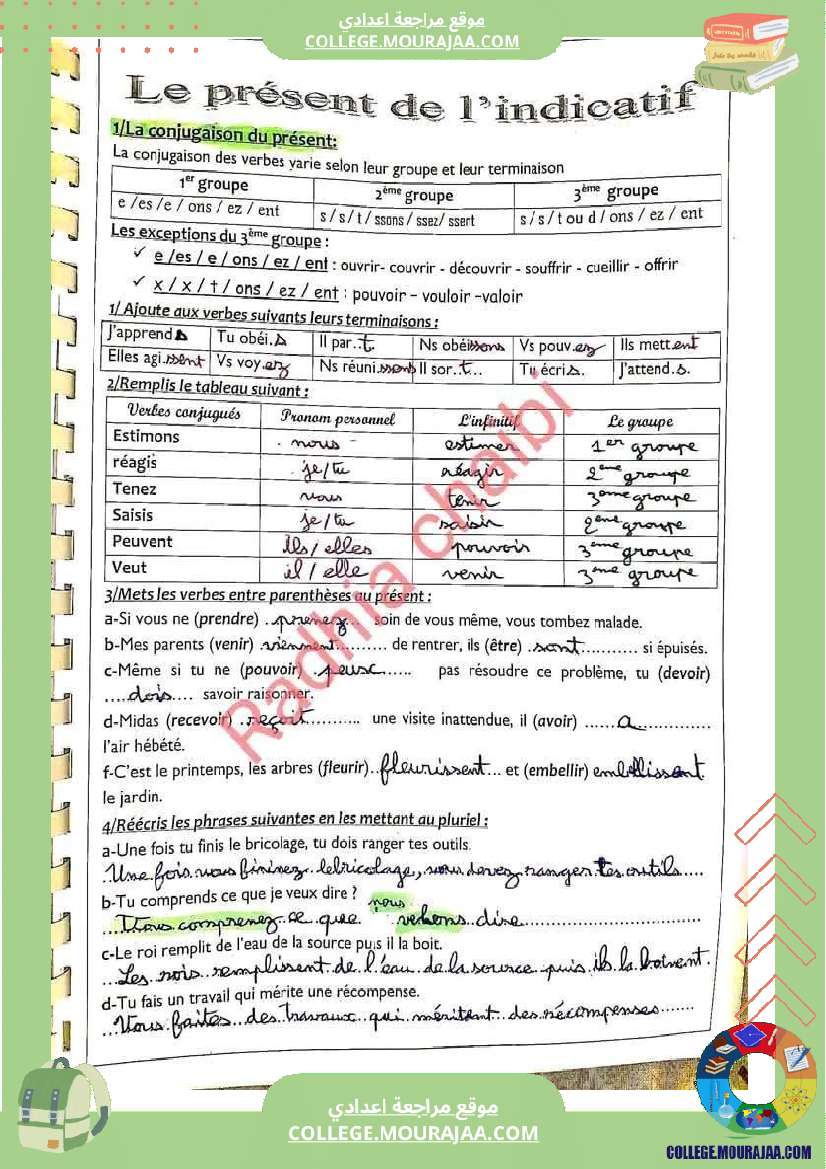 موقع مراجعة اعدادي
COLLEGE.MOURAJAA.COM
Le présent de l'indicatif
1/La conjugaison du présent:
La conjugaison des verbes varie selon leur groupe et leur terminaison
1er groupe 2ème groupe 3ème groupe
e /es /e / ons / ez / ent s / s / t / ssons / ssez/ ssent s / s / t ou d / ons / ez / ent
Les exceptions du 3ème groupe :
✓ e /es / e / ons / ez / ent : ouvrir- couvrir - découvrir - souffrir - cueillir - offrir
✓ x / x / t / ons / ez / ent : pouvoir – vouloir -valoir
1/ Ajoute aux verbes suivants leurs terminaisons :
J'apprends Tu obéi.s Il par..t. Ns obéissons Vs pouv.ez Ils mettent
Elles agi.ssent Vs voy.ez Ns réuni.ssons Il sor..t... Tu écris. J'attend.s.
2/Remplis le tableau suivant :
Verbes conjugués Pronom personnel L'infinitif Le groupe
Estimons nous estimer 1er groupe
réagis je/tu réagir 2ème groupe
Tenez vous tenir 3ème groupe
Saisis je/tu saisir 2ème groupe
Peuvent Ils/elles pouvoir 3ème groupe
Veut il/elle venir 3ème groupe
3/Mets les verbes entre parenthèses au présent :
a-Si vous ne (prendre) ..prenez... soin de vous même, vous tombez malade.
b-Mes parents (venir) viennent.......... de rentrer, ils (être) .sont........... si épuisés.
c-Même si tu ne (pouvoir) .peux...... pas résoudre ce problème, tu (devoir)
....dois.... savoir raisonner.
d-Midas (recevoir) .reçoit........... une visite inattendue, il (avoir) ......a..............
l'air hébété.
f-C'est le printemps, les arbres (fleurir)..fleurissent... et (embellir) embellissent
le jardin.
4/Réécris les phrases suivantes en les mettant au pluriel :
a-Une fois tu finis le bricolage, tu dois ranger tes outils.
..Une fois vous fininez lebricolage, vous devez ranger tes outils....
b-Tu comprends ce que je veux dire ?
nous
....Vous comprenez ce que venons dire...
c-Le roi remplit de l'eau de la source puis il la boit.
...Les rois remplissent de l'eau de la source puis ils la boivent.
d-Tu fais un travail qui mérite une récompense.
...Vous faites des travaux qui méritent des récompenses.......
Radhia chaibi
موقع مراجعة اعدادي
COLLEGE.MOURAJAA.COM
COLLEGE.MOURAJAA.COM